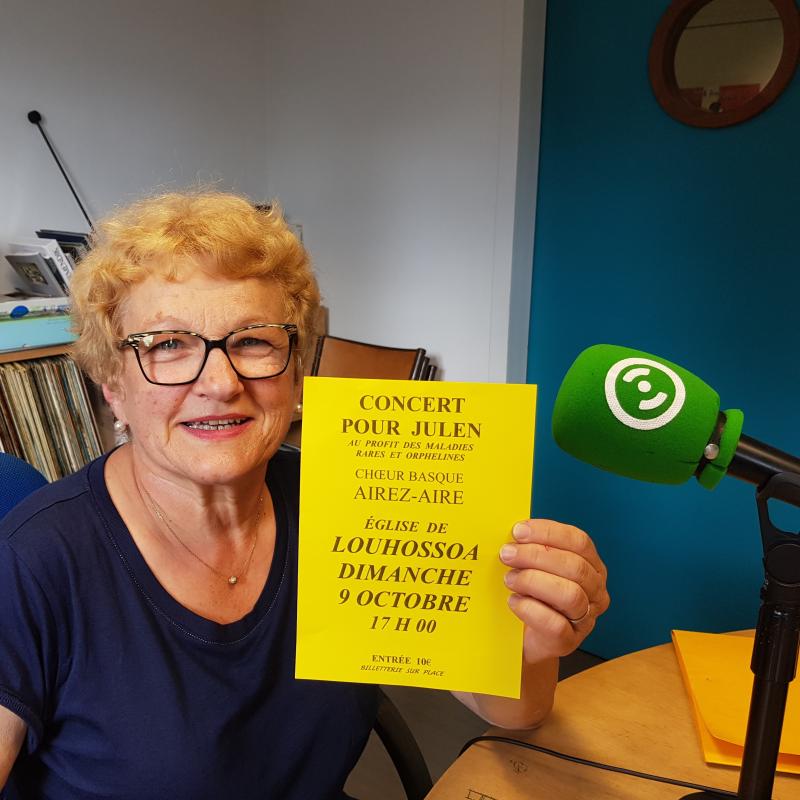 CONCERT
POUR JULEN
AU PROFIT DES MALADIES
RARES ET ORPHELINES
CHŒUR BASQUE
AIREZ-AIRE
ÉGLISE DE
LOUHOSSOA
DIMANCHE
9 OCTOBRE
17 H 00
ENTRÉE 10€
BILLETTERIE SUR PLACE